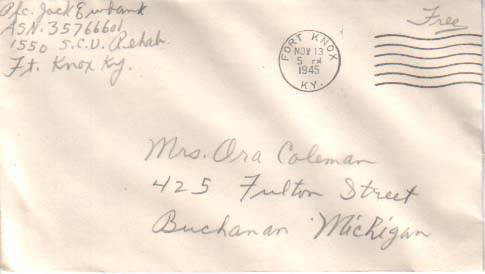 Pfc. Jack Ewbank
ASN. 35766601
1550 S.C.U. Rehab.
Ft. Knox Ky.
Free
FORT KNOX
NOV 13
5 PM
1945
KY.
Mrs. Ora Coleman
425 Fulton Street
Buchanan Michigan